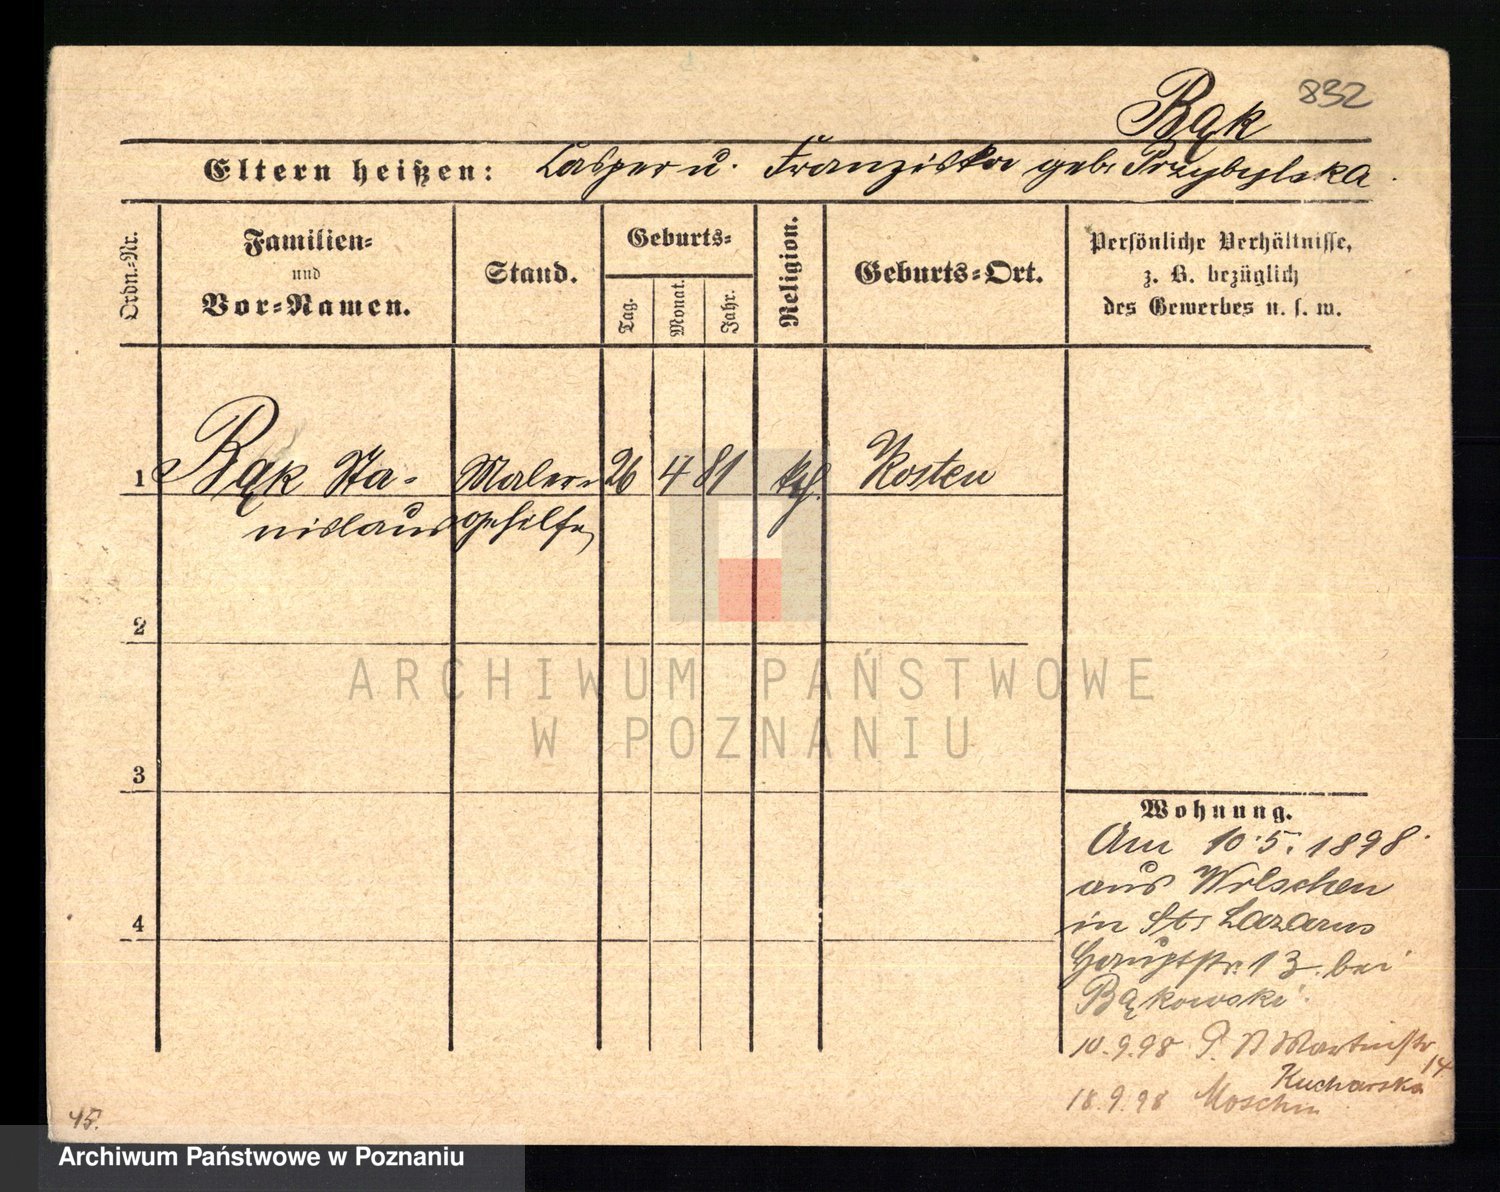 Bąk 832
Eltern heißen: Casper u. Franziska geb. Przybylska
Ordn.-Nr.
Familien-
und
Vor-Namen.
Stand.
Geburts-
Tag.
Monat.
Jahr.
Religion.
Geburts-Ort.
Persönliche Verhältnisse,
z. B. bezüglich
des Gewerbes u. s. w.
1 Bąk Sta- Maler- 26 4 81 kth. Kosten
nislaus gehilfe
2
ARCHIWUM PAŃSTWOWE
W POZNANIU
3
Wohnung.
Am 10.5.1898
aus Wolschen
4
in St. Lazarus
Hauptstr. 13 bei
Bąkowski.
10.9.98 P. St Martinstr
14
Kucharska
18.9.98 Moschin
45.
Archiwum Państwowe w Poznaniu